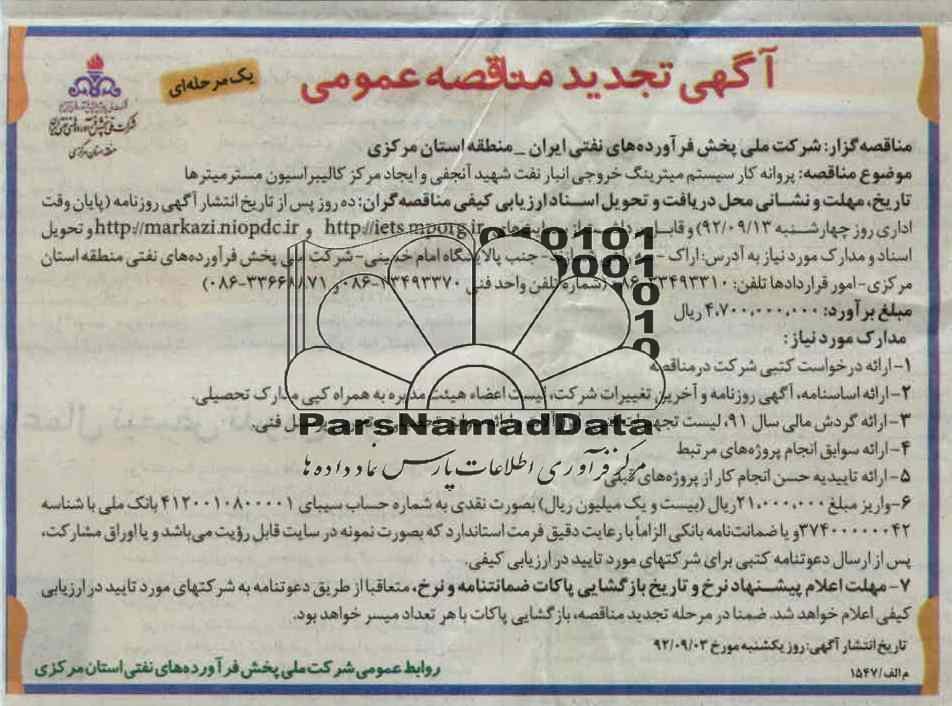 آگهی تجدید مناقصه عمومی
یک مرحله‌ای
شرکت ملی پخش فرآورده‌های نفتی ایران
منطقه استان مرکزی
مناقصه گزار: شرکت ملی پخش فرآورده‌های نفتی ایران _منطقه استان مرکزی
موضوع مناقصه: پروانه کار سیستم میترینگ خروجی انبار نفت شهید آنجفی و ایجاد مرکز کالیبراسیون مستر میترها
تاریخ، مهلت و نشانی محل دریافت و تحویل اسناد ارزیابی کیفی مناقصه‌گران: ده روز پس از تاریخ انتشار آگهی روزنامه (پایان وقت
اداری روز چهارشنبه ۹۲/۰۹/۱۳) و http://iets.mporg.ir و http://markazi.niopdc.ir و تحویل
اسناد و مدارک مورد نیاز به آدرس: اراک - جنب پالایشگاه امام خمینی- شرکت ملی پخش فرآورده‌های نفتی منطقه استان
مرکزی- امور قراردادها تلفن: ۳۳۴۹۳۳۱۰-۰۸۶ (شماره تلفن واحد فنی ۳۳۴۹۳۳۷۰-۰۸۶ و ۳۳۶۶۸۸۷۱-۰۸۶)
مبلغ برآورد: ۴،۷۰۰،۰۰۰،۰۰۰ ریال
مدارک مورد نیاز:
۱- ارائه درخواست کتبی شرکت در مناقصه
۲- ارائه اساسنامه، آگهی روزنامه و آخرین تغییرات شرکت، لیست اعضاء هیئت مدیره به همراه کپی مدارک تحصیلی.
۳- ارائه گردش مالی سال ۹۱، لیست تجهیزات فنی.
۴- ارائه سوابق انجام پروژه‌های مرتبط
۵- ارائه تاییدیه حسن انجام کار از پروژه‌های قبلی
۶- واریز مبلغ ۲۱،۰۰۰،۰۰۰ ریال (بیست و یک میلیون ریال) بصورت نقدی به شماره حساب سیبای ۴۱۲۰۰۱۰۸۰۰۰۰۱ بانک ملی با شناسه
۳۷۴۰۰۰۰۰۰۴۲ و یا ضمانت‌نامه بانکی الزاماً با رعایت دقیق فرمت استاندارد که بصورت نمونه در سایت قابل رؤیت می‌باشد و یا اوراق مشارکت،
پس از ارسال دعوتنامه کتبی برای شرکتهای مورد تایید در ارزیابی کیفی.
۷- مهلت اعلام پیشنهاد نرخ و تاریخ بازگشایی پاکات ضمانتنامه و نرخ، متعاقبا از طریق دعوتنامه به شرکتهای مورد تایید در ارزیابی
کیفی اعلام خواهد شد. ضمنا در مرحله تجدید مناقصه، بازگشایی پاکات با هر تعداد میسر خواهد بود.
تاریخ انتشار آگهی: روز یکشنبه مورخ ۹۲/۰۹/۰۳
م الف/۱۵۴۷
روابط عمومی شرکت ملی پخش فرآورده‌های نفتی استان مرکزی
ParsNamadData
مرکز فرآوری اطلاعات پارس نماد داده ها